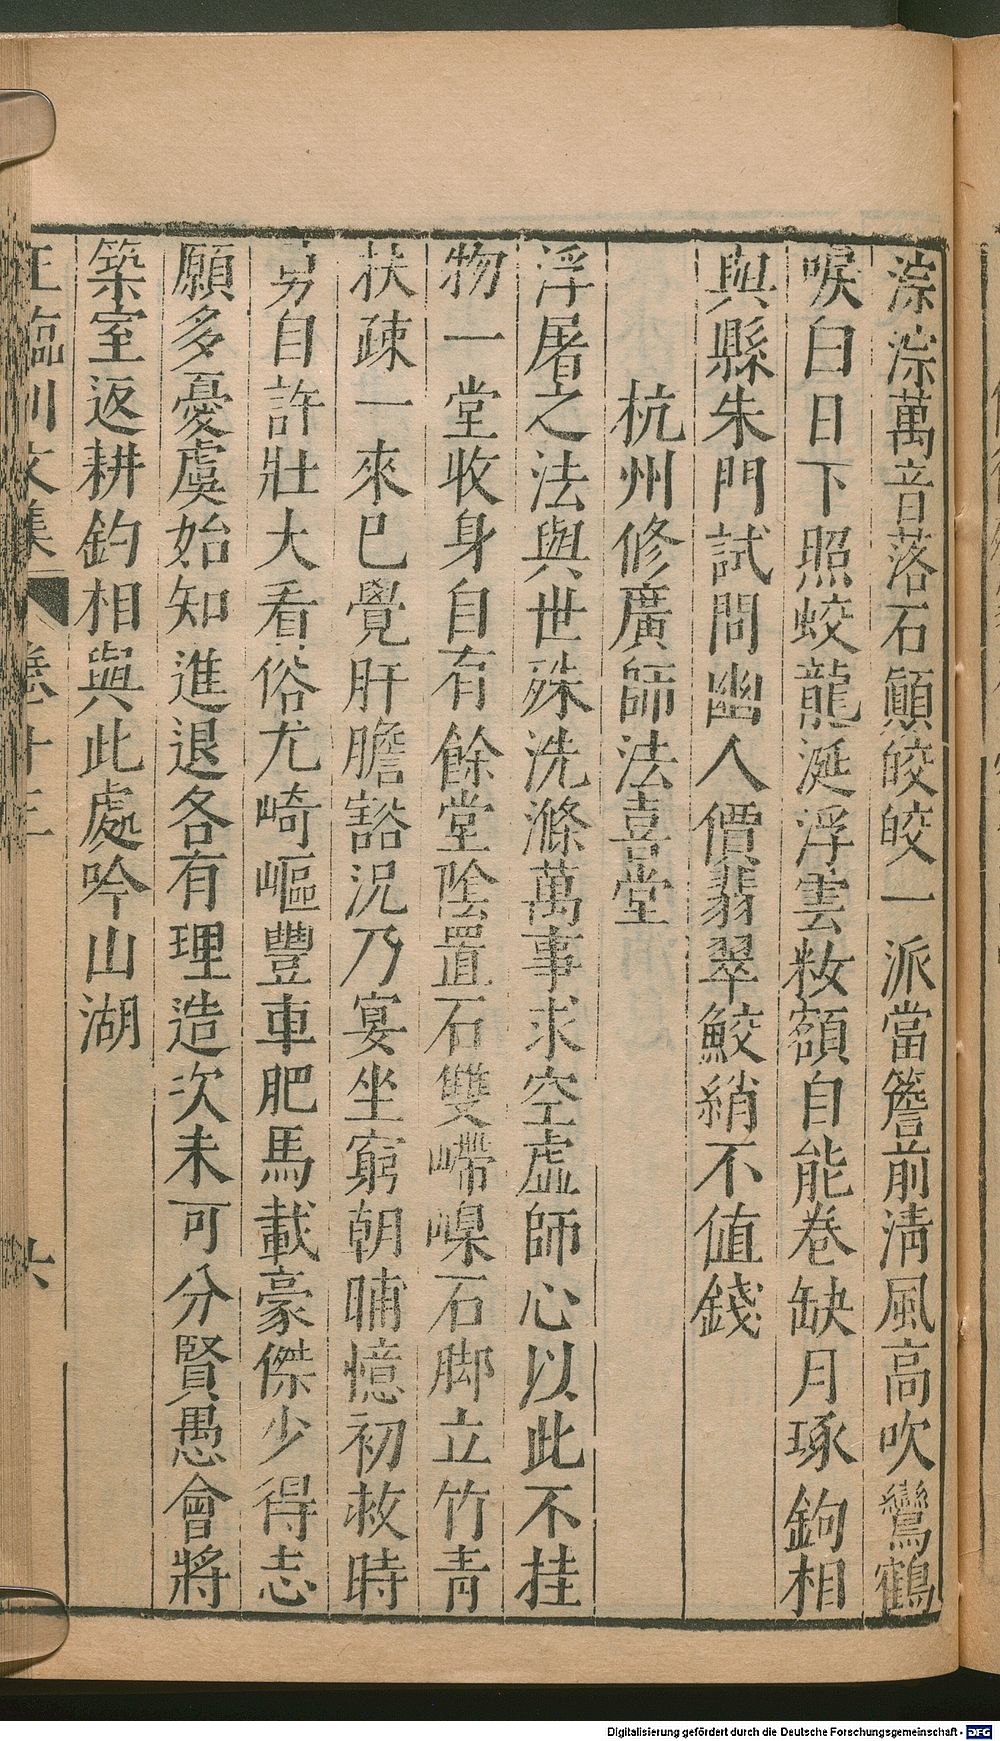 淙淙萬音落石顛皎皎一派當簷前淸風高吹鸞鶴
唳白日下照蛟龍涎浮雲粧額自能卷缺月琢鉤相
與縣朱門試問幽人價翡翠鮫綃不值錢
杭州修廣師法喜堂
浮屠之法與世殊洗滌萬事求空虛師心以此不挂
物一堂收身自有餘堂陰置石雙嵽嵲石脚立竹青
扶疎一來已覺肝膽豁況乃宴坐窮朝晡憶初救時
勇自許壯大看俗尤崎嶇豐車肥馬載豪傑少得志
願多憂虞始知進退各有理造次未可分賢愚會將
築室返耕釣相與此處吟山湖
王臨川文集 卷十三 六
Digitalisierung gefördert durch die Deutsche Forschungsgemeinschaft - DFG